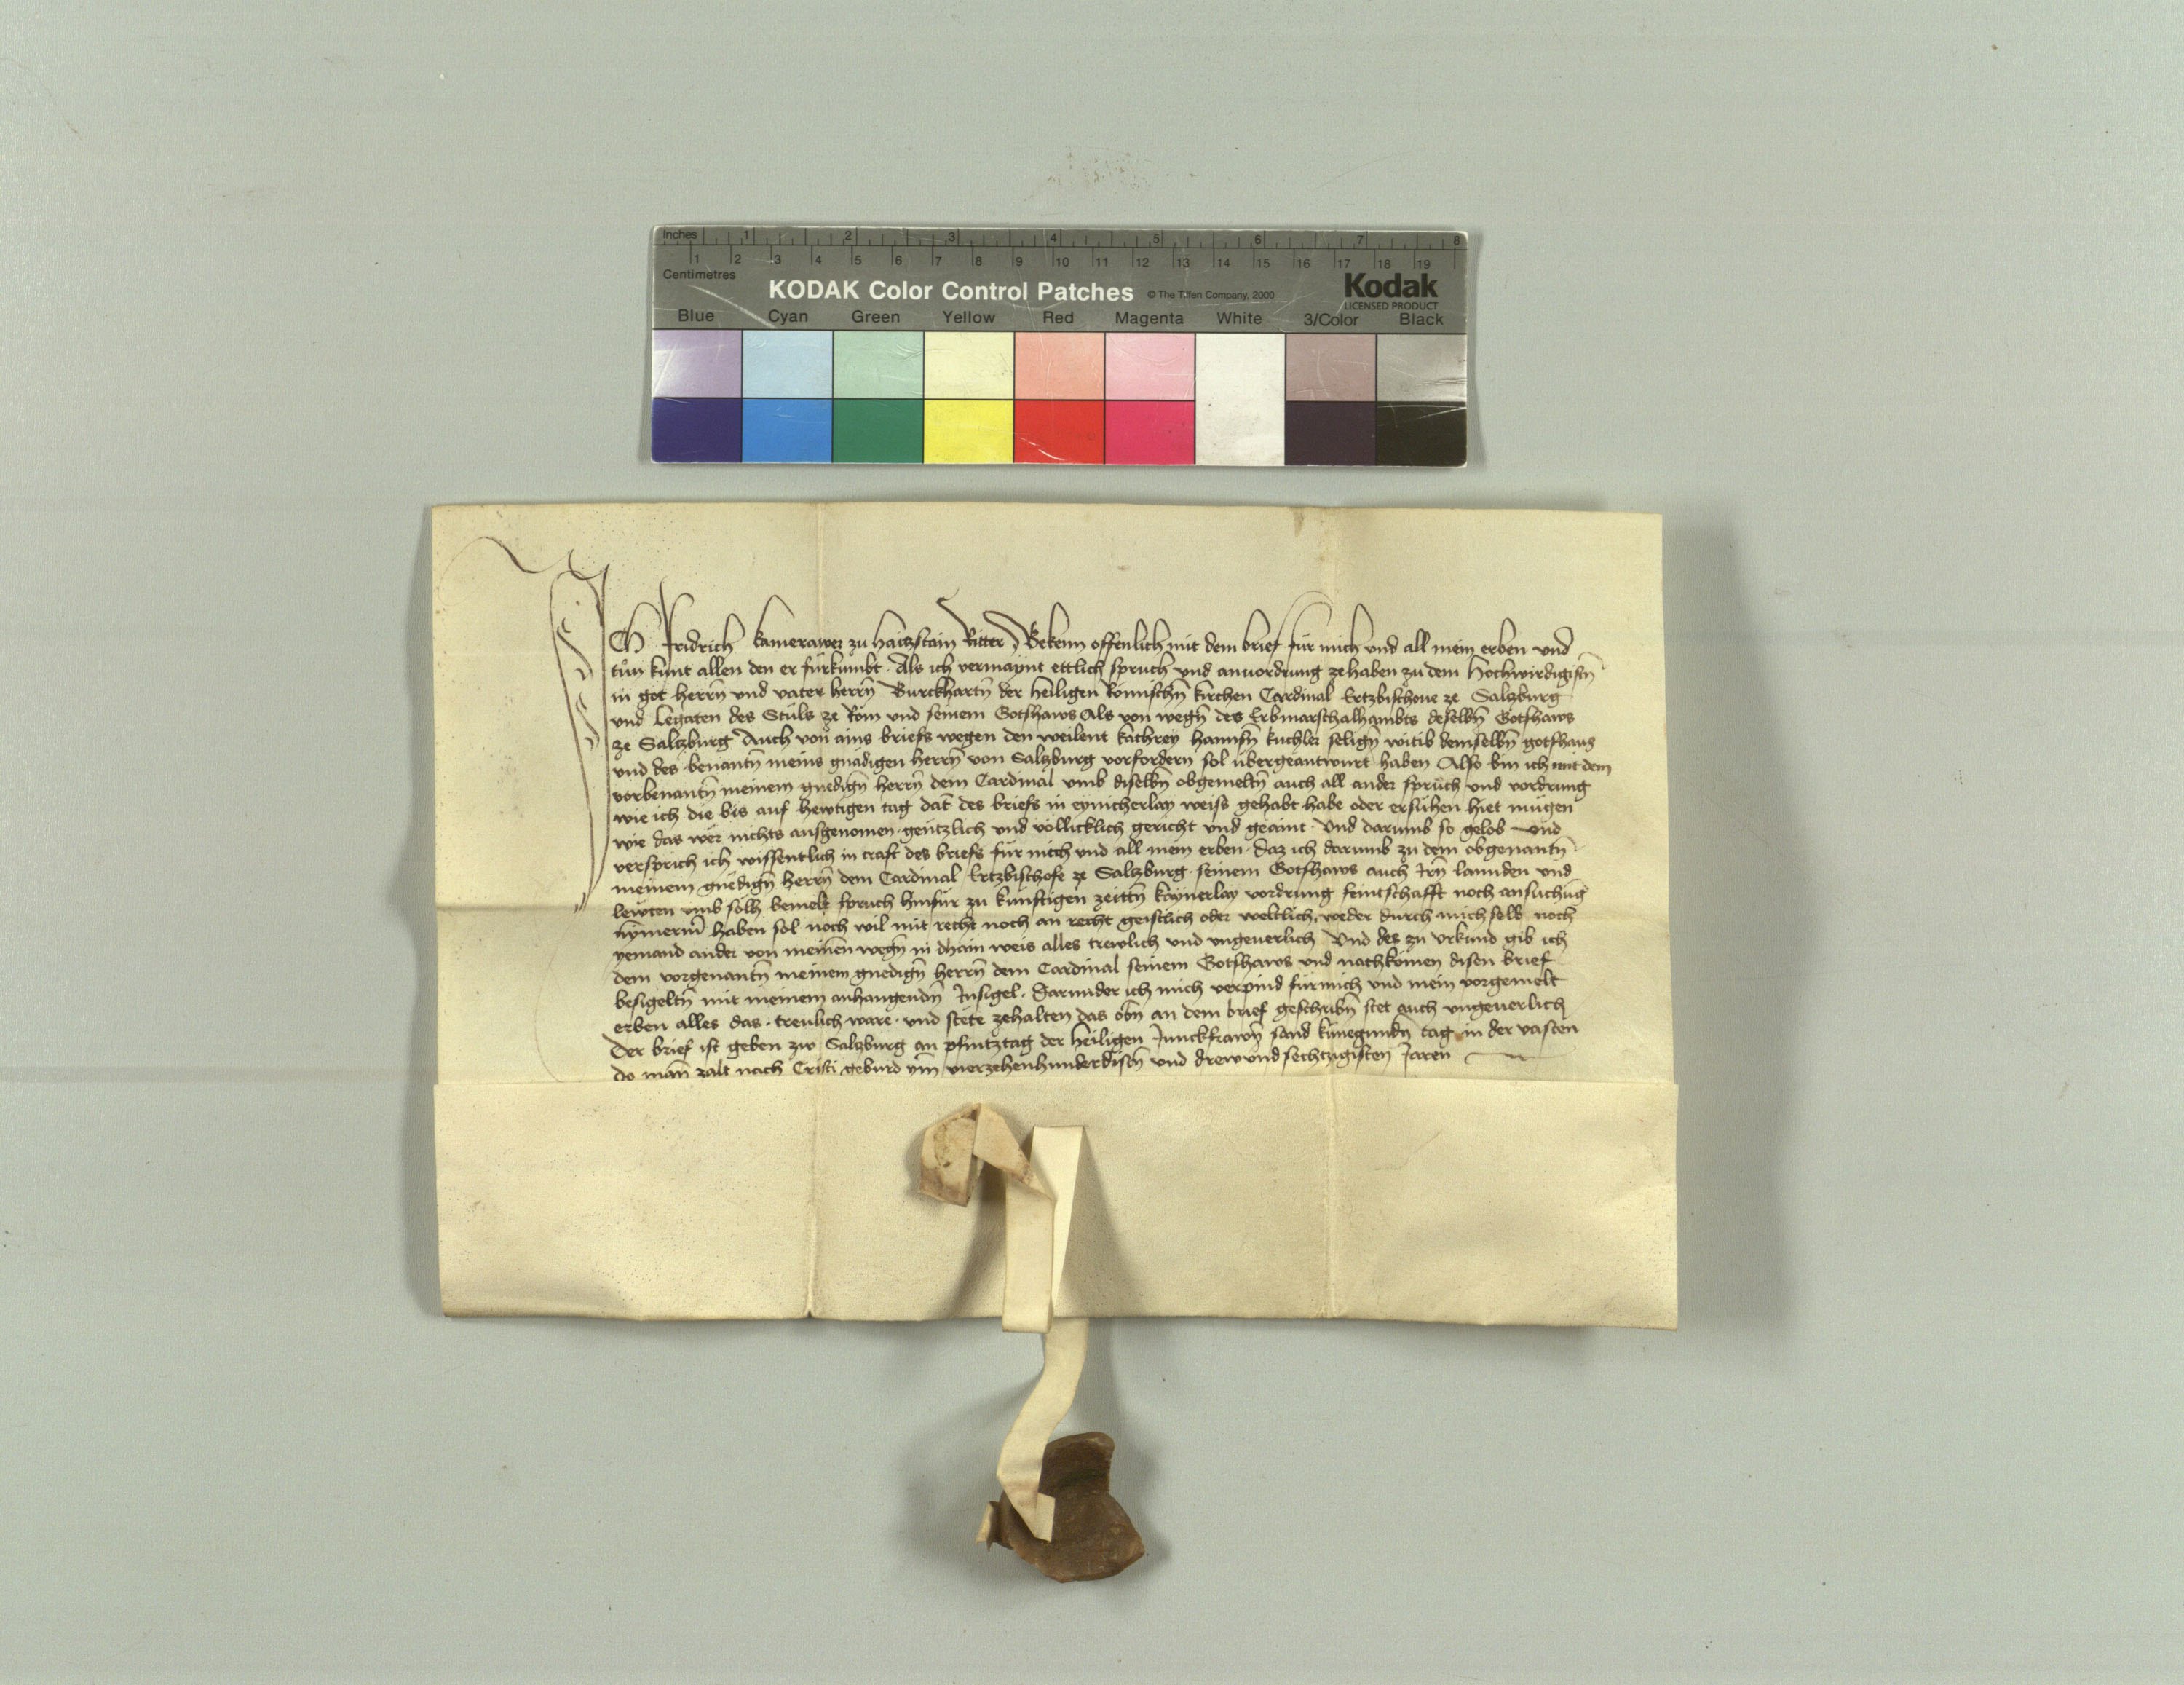 Inches 1 2 3 4 5 6 7 8
1 2 3 4 5 6 7 8 9 10 11 12 13 14 15 16 17 18 19
Centimetres
KODAK Color Control Patches © The Tiffen Company, 2000 Kodak
LICENSED PRODUCT
Blue Cyan Green Yellow Red Magenta White 3/Color Black
Ich Fridrich kamerawer zu haitzstain Ritter Bekenn offenlich mit dem brief für mich und all mein erben und
tůn kunt allen den er fürkumbt · Als ich vermaÿnt ettlich spruch und anuordrung ze haben zu dem hochwirdigistn̄
in got herrn̄ und vater herrn̄ Burckhartn̄ der heiligen Römischn̄ kirchen Cardinal Ertzbischoue ze Saltzburg
und Legaten des Stůls ze Rom und seinem Gotshaws Als von wegn̄ des Erbmarschalhambts desselbn̄ Gotshaws
ze Saltzburg Auch von ains briefs wegen den weilent kathreÿ hannsn̄ kuchler seligen witib demselbn̄ gotshaus
und des benantn̄ meins gnadigen herrn̄ von Saltzburg vorfordern sol übergeantwurt haben Also bin ich mit dem
vorbenantn̄ meinem gnedign̄ herrn̄ dem Cardinal umb dieselbn̄ obgemeltn̄ auch all ander sprüch und vordrung
wie ich die bis auf hewtigen tag dat̄ des briefs in eynicherlay weiss gehabt habe oder ersůhen hiet mügen
wie das wer nichts ausgenomen · gentzlich und völlicklich gericht und geaint · Und darumb so gelob und
versprich ich wissentlich in craft des briefs für mich und all mein erben · daz ich darumb zu dem obgenantn̄
meinem gnedign̄ herrn̄ dem Cardinal Ertzbischofe ze Saltzburg · seinem Gotshaws auch Irn̄ lannden und
lewten umb solh bemelt spruch hinfür zu künftigen zeittn̄ kaÿnerlay vordrung feintschafft noch ansuchūg
nymerm̄ haben sol noch wil mit recht noch an recht geistlich oder weltlich, weder durch mich selb noch
yemand ander von meinen wegn̄ in dhain weis alles trewlich und ungeuerlich Und des zu urkund gib ich
dem vorgenantn̄ meinem gnedign̄ herrn̄ dem Cardinal seinem Gotshaws und nachkomen disen brief
besigeltn̄ mit meinem anhangendn̄ Insigel · darunder ich mich verpind für mich und mein vorgemelt
erben alles das · treulich ware · und stete zehalten das obn̄ an dem brief geschribn̄ stet auch ungeuerlich
Der brief ist geben zw Saltzburg an pfintztag der heiligen Junckfrawn̄ sand künegundn̄ tag in der vasten
do man zalt nach Cristi geburd ym̄ vierzehenhundertistn̄ und drewundsechtzigisten Jaren